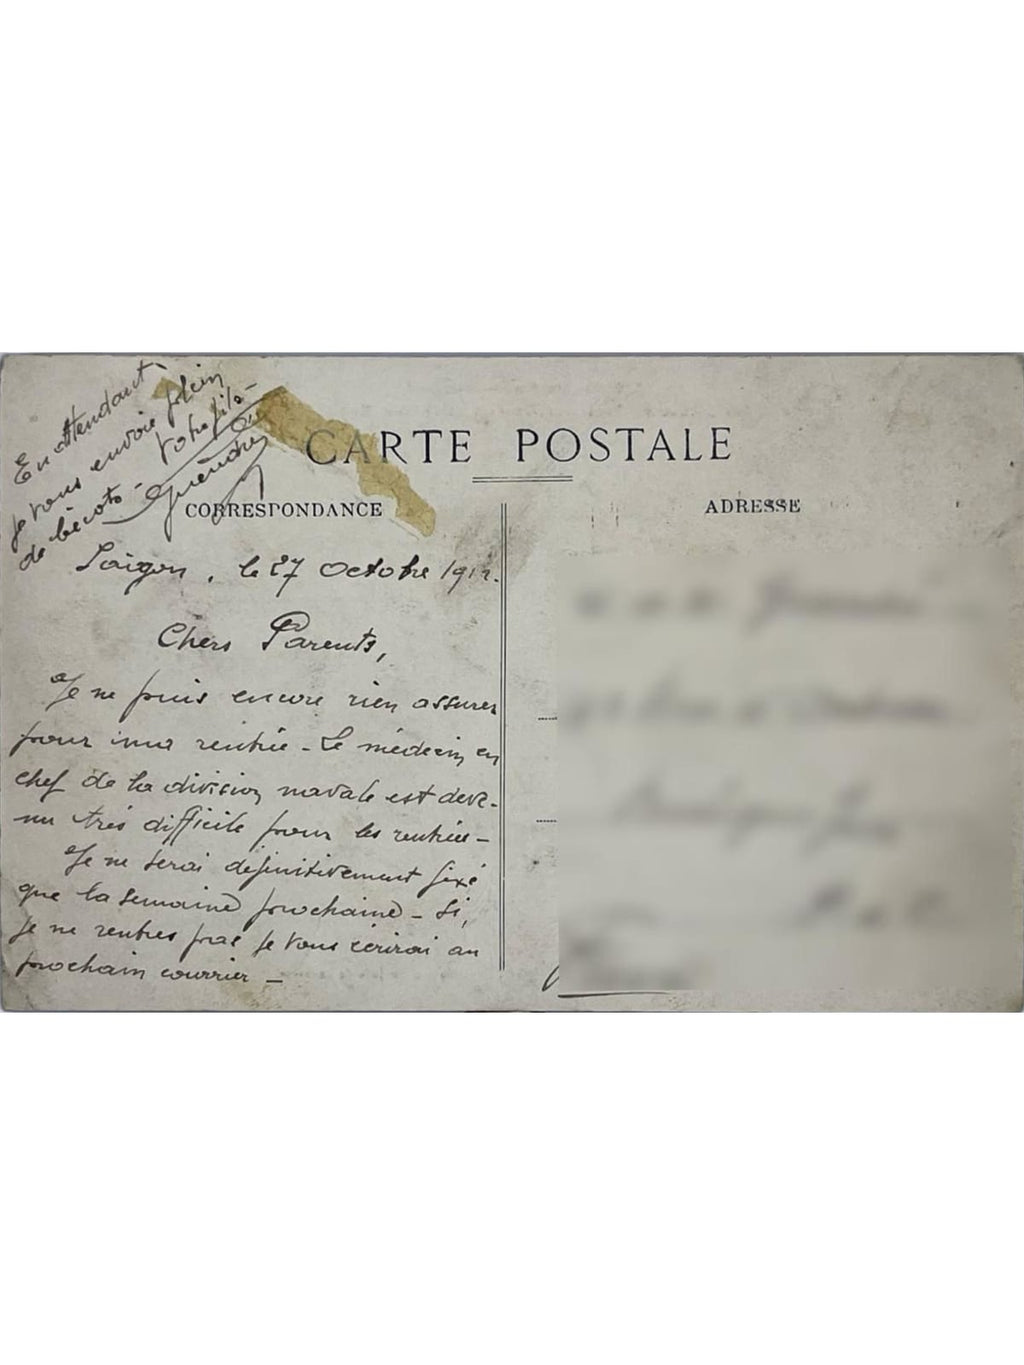 CARTE POSTALE
CORRESPONDANCE
ADRESSE
Saigon, le 27 Octobre 191
Chers Parents,
Je ne puis encore rien assurer
pour ma rentrée - Le médecin en
chef de la division navale est deve-
nu très difficile pour les rentrées -
Je ne serai définitivement fixé
que la semaine prochaine - Si,
je ne rentres pas je vous écrirai au
prochain courrier -
En attendant
je vous envoie plein
de bécots -
Votre fils -